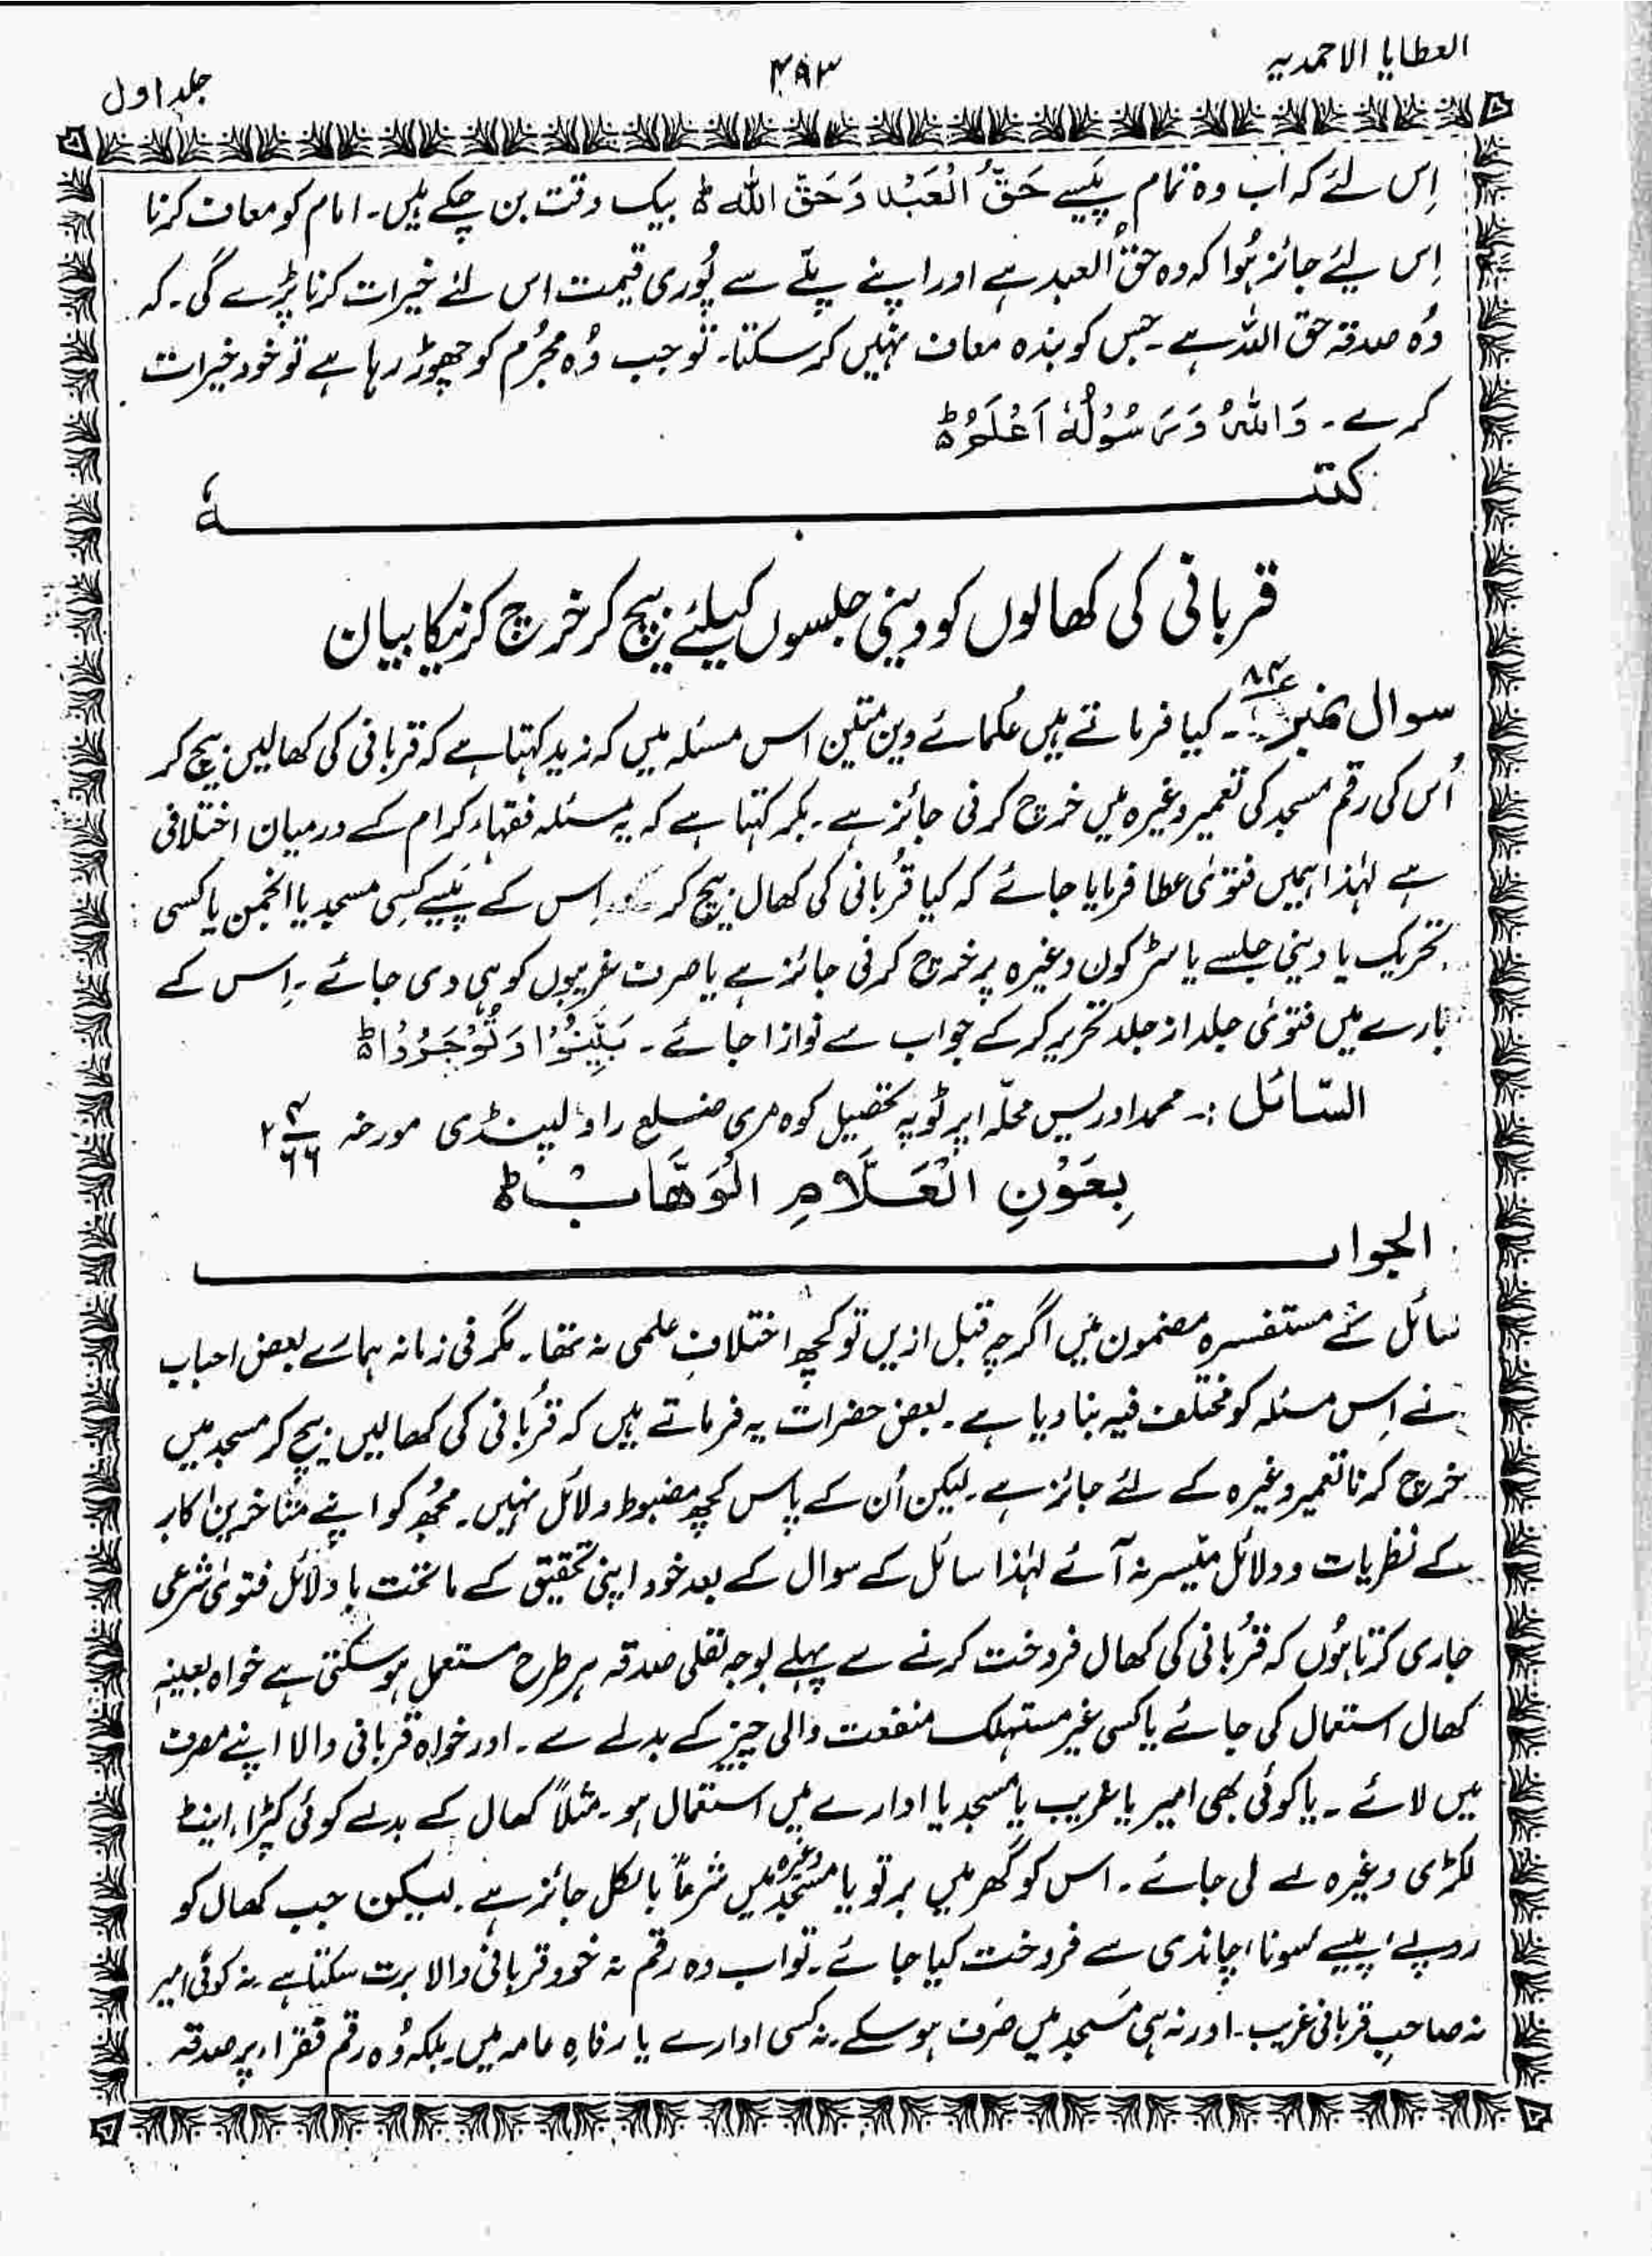 العطایا الاحمدیہ
۴۹۳
جلد اول
اِس لئے کہ اب وہ تمام پیسے حَقُّ الْعَبْدِ وَحَقُّ اللّٰہِ ط بیک وقت بن چکے ہیں۔ امام کو معاف کرنا
اِس لیے جائز ہُوا کہ وہ حقُ العبد ہے اور اپنے پلّے سے پُوری قیمت اس لئے خیرات کرنا پڑے گی۔ کہ
وُہ صدقہ حق اللہ ہے۔ جس کو بندہ معاف نہیں کر سکتا۔ تو جب وُہ مجرُم کو چھوڑ رہا ہے تو خود خیرات
کرے۔ وَاللّٰہُ وَرَسُوْلُہٗ اَعْلَمُ ط
کتبہٗ
قربانی کی کھالوں کو دینی جلسوں کیلئے بیچ کر خرچ کرنیکا بیان
سوال نمبر ۸۴۔ کیا فرماتے ہیں عُلمائے دین متین اس مسئلہ میں کہ زید کہتا ہے کہ قربانی کی کھالیں بیچ کر
اُس کی رقم مسجد کی تعمیر وغیرہ میں خرچ کرنی جائز ہے۔ بکر کہتا ہے کہ یہ مسئلہ فقہاء کرام کے درمیان اختلافی
ہے لہٰذا ہمیں فتوٰی عطا فرمایا جائے کہ کیا قُربانی کی کھال بیچ کر اِس کے پیسے کِسی مسجد یا انجمن یا کسی
تحریک یا دینی جلسے یا سڑکوں وغیرہ پر خرچ کرنی جائز ہے یا صرف غریبوں کو ہی دی جائے۔ اِس کے
بارے میں فتوٰی جلد از جلد تحریر کر کے جواب سے نوازا جائے۔ بَیِّنُوْا وَتُوْجَرُوْا ط
السّائل :۔ محمد ادریس محلّہ اپر ٹوپہ تحصیل کوہ مری ضلع راولپنڈی مورخہ ۲ ۴/۶۶
بِعَوْنِ الْعَلَّامِ الْوَھَّابِ ط
الجواب
سائل کے مستفسرہ مضمون میں اگرچہ قبل ازیں تو کچھ اختلافِ علمی نہ تھا۔ مگر فی زمانہ ہمارے بعض احباب
نے اِس مسئلہ کو مختلف فیہ بنا دیا ہے۔ بعض حضرات یہ فرماتے ہیں کہ قُربانی کی کھالیں بیچ کر مسجد میں
خرچ کرنا تعمیر وغیرہ کے لئے جائز ہے۔ لیکن اُن کے پاس کچھ مضبوط دلائل نہیں۔ مجھُ کو اپنے متاخرین اکابر
کے نظریات و دلائل میّسر نہ آئے لہٰذا سائل کے سوال کے بعد خود اپنی تحقیق کے ماتحت با دلائل فتوٰی شرعی
جاری کرتا ہُوں کہ قُربانی کی کھال فروخت کرنے سے پہلے بوجہ نفلی صدقہ ہر طرح مستعمل ہو سکتی ہے خواہ بعینہٖ
کھال استعمال کی جائے یا کسی غیر مستہلک منفعت والی چیز کے بدلے سے۔ اور خواہ قربانی والا اپنے مصرف
میں لائے۔ یا کوئی بھی امیر یا غریب یا مسجد یا ادارے میں استعمال ہو۔ مثلاً کھال کے بدلے کوئی کپڑا، اینٹ
لکڑی وغیرہ لے لی جائے۔ اس کو گھر میں برتو یا مسجد وغیرہ میں شرعاً بالکل جائز ہے۔ لیکن جب کھال کو
روپے، پیسے سونا، چاندی سے فروخت کیا جائے۔ تو اب وہ رقم نہ خود قربانی والا برت سکتا ہے۔ نہ کوئی امیر
نہ صاحبِ قربانی غریب۔ اور نہ ہی مَسجد میں صَرف ہو سکے۔ نہ کسی ادارے یا رفاہِ عامہ میں۔ بلکہ وُہ رقم فقراء پر صدقہ